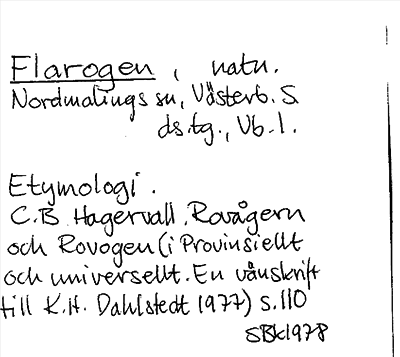 Flarogen, natn.
Nordmalings sn, Västerb. S
ds.tg., Vb. l.
Etymologi.
C.B Hagervall, Rovågern
och Rovogen (i Provinsiellt
och universellt. En vänskrift
till K.H. Dahlstedt 1977) s. 110
SBk 1978